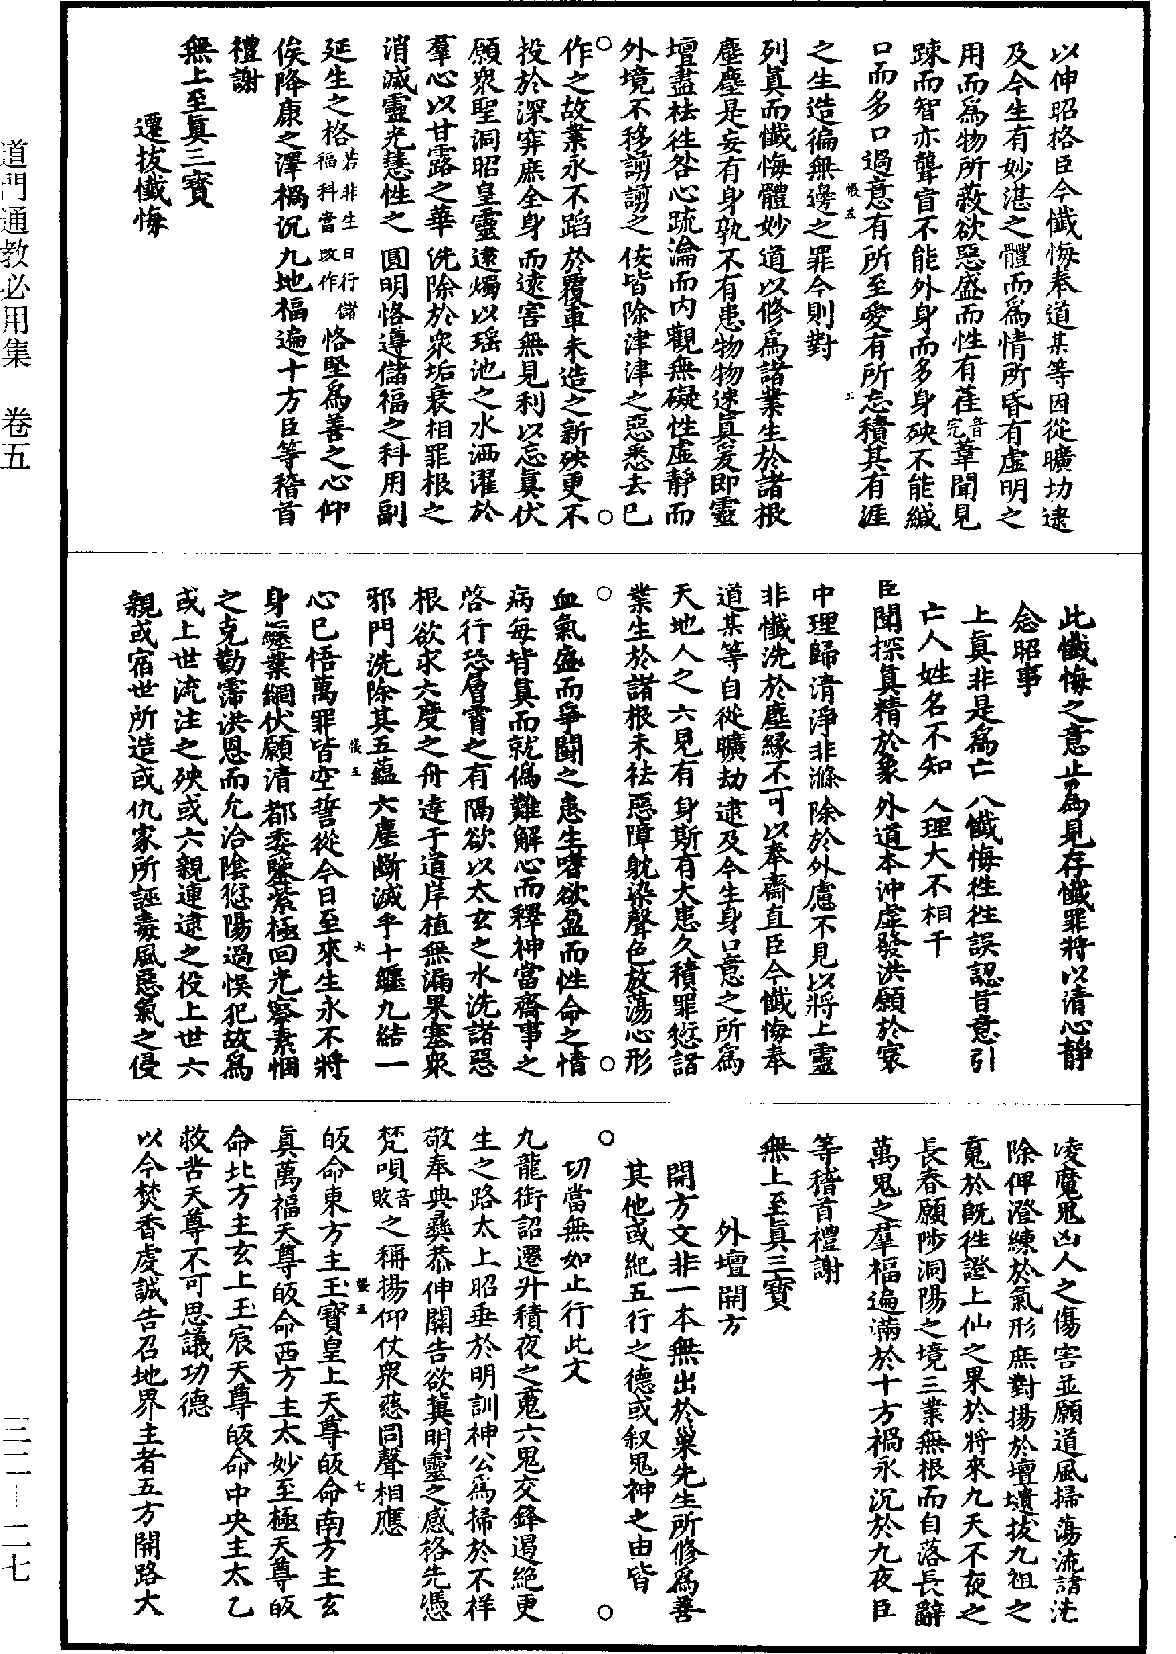 以伸昭格臣今懺悔奉道某等因從曠劫逮
及今生有妙湛之體而爲情所昏有虛明之
用而爲物所蔽欲惡盛而性有萑音完葦聞見
踈而智亦聾盲不能外身而多身殃不能緘
口而多口過意有所至愛有所忘積其有涯
之生造徧無邊之罪今則對
列真而懺悔體妙道以修爲諸業生於諸根
塵塵是妄有身孰不有患物物速真爰即靈
壇盡袪徃咎心疏瀹而内觀無礙性虛静而
外境不移謭謭之佞皆除津津之惡悉去已
作之故業永不蹈於覆車未造之新殃更不
投於深穽庶全身而遠害無見利以忘真伏
願衆聖洞昭皇靈逮燭以瑶池之水洒濯於
羣心以甘露之華洗除於衆垢衰相罪根之
消滅靈光慧性之圓明恪遵儲福之科用副
延生之格若非生日行儲福科當改作恪堅爲善之心仰
俟降康之澤禍沉九地福遍十方臣等稽首
禮謝
無上至真三寳
遷拔懺悔
此懺悔之意止爲見存懺罪將以清心静
念昭事
上真非是爲亡八懺悔徃徃誤認首意引
亡人姓名不知人理大不相干
臣聞探真精於象外道本沖虛發洪願於寰
中理歸清淨非滌除於外慮不見以將上靈
非懺洗於塵縁不可以奉齋直臣今懺悔奉
道某等自從曠劫逮及今生身口意之所爲
天地人之六見有身斯有大患久積罪愆諸
業生於諸根未袪惡障躭染聲色放蕩心形
血氣盛而爭鬪之患生嗜欲盈而性命之情
病每背真而就僞難解心而釋神當齋事之
啓行恐層霄之有隔欲以太玄之水洗諸惡
根欲求六度之舟達于道岸植無漏果塞衆
邪門洗除其五藴六塵斷滅乎十纏九結一
心已悟萬罪皆空誓從今日至來生永不將
身纒業綱伏願清都委鑒紫極回光察素悃
之克勤霈洪恩而允洽陰愆陽過悞犯故爲
或上世流注之殃或六親連逮之役上世六
親或宿世所造或仇家所誣毒風惡氣之侵
凌魔鬼凶人之傷害並願道風掃蕩流諸洗
除俾澄練於氣形庶對揚於壇墠拔九祖之
䰟於旣徃證上仙之果於將來九天不夜之
長春願陟洞陽之境三業無根而自落長辭
萬鬼之羣福遍滿於十方禍永沉於九夜臣
等稽首禮謝
無上至真三寳
外壇開方
開方文非一本無出於巢先生所修爲善
其他或紀五行之德或叙鬼神之由皆
切當無如止行此文
九龍銜詔遷升積夜之䰟六鬼交鋒遏絶更
生之路太上昭垂於明訓神公爲掃於不祥
敬奉典彝恭伸關告欲冀明靈之感格先憑
梵唄音敗之稱揚仰仗衆慈同聲相應
皈命東方主玉寳皇上天尊皈命南方主玄
真萬福天尊皈命西方主太妙至極天尊皈
命北方主玄上玉宸天尊皈命中央主太乙
救苦天尊不可思議功德
以今焚香虔誠告召地界主者五方開路大
道門通教必用集 卷五
三二—二七